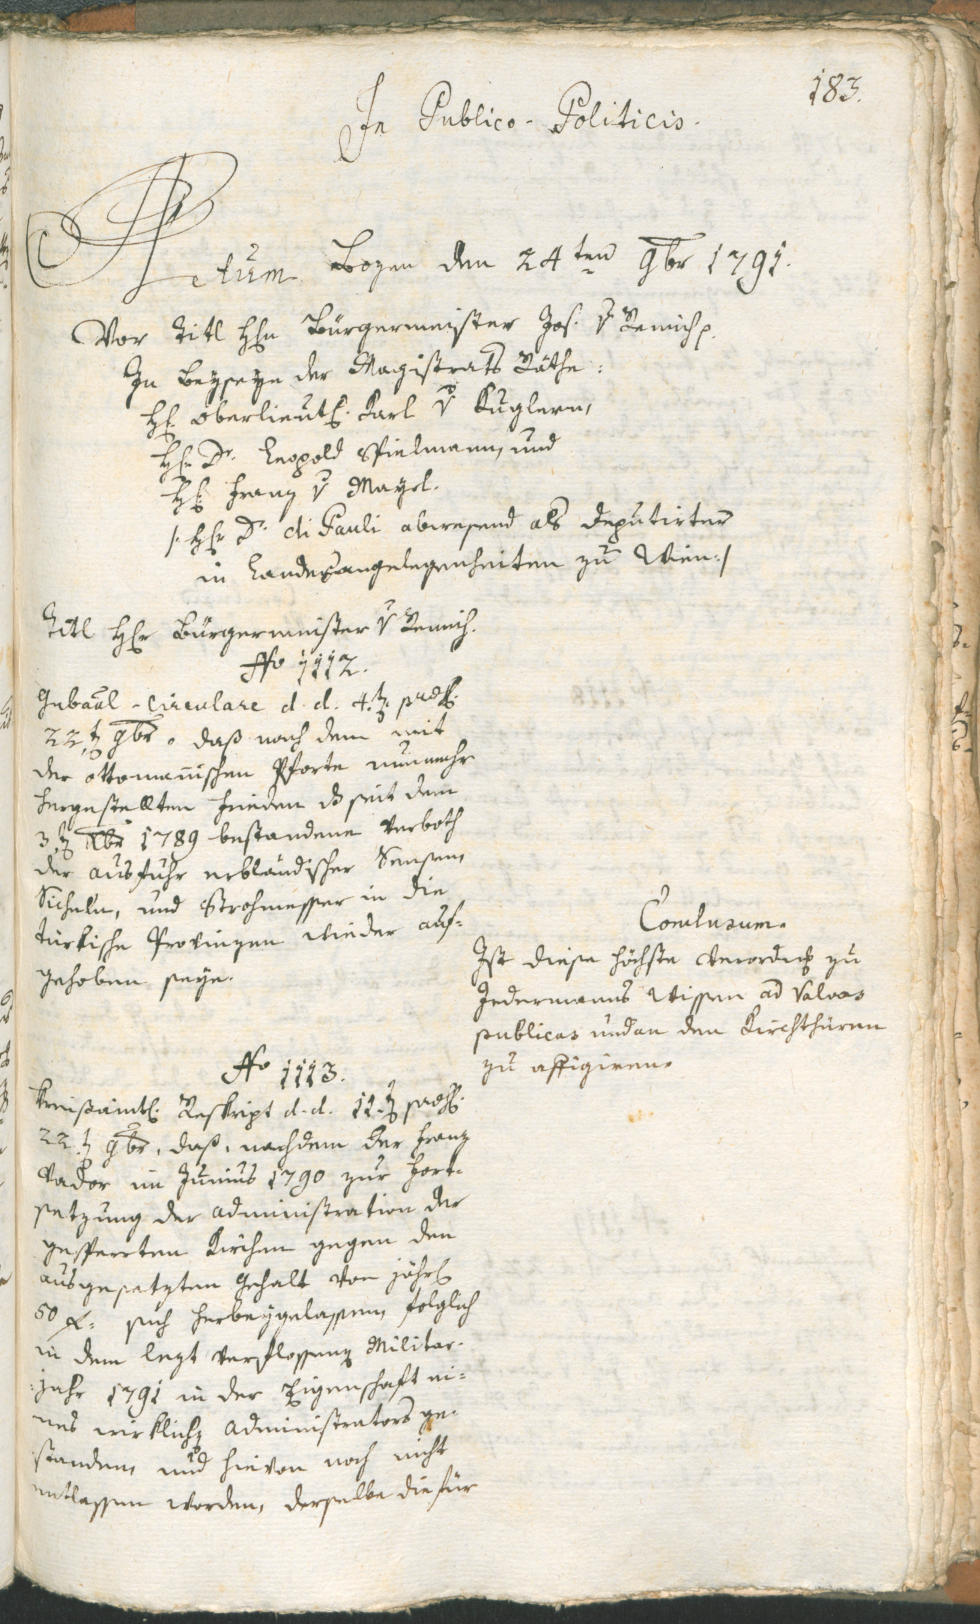 183.
In Publico-Politicis.
Actum Bozen den 24ten 9br 1791.
Vor Titl Hhn Bürgermeister Jos. v Remich p.
In Beyseyn der Magistrats Räthe:
Hh Oberlieut. Karl v Kuglern,
Hhn Dr. Leopold Spielmann, und
Hh Franz v Mayrl.
/: Hhr Dr. di Pauli abwesend als deputirter
in Landesangelegenheiten zu Wien :/
Titl Hhr Bürgermeister v Remich.
No 1112.
Gubaal-Circulare d. d. 4.t praes.
22t 9br. daß nach dem mit
der ottomanischen Pforte nunmehr
hergestellten Frieden d seit dem
3t Xbr 1789 bestandene Verboth
der Ausfuhr erbländischer Sensen,
Sicheln, und Strohmesser in die
türkische Provinzen wieder auf-
gehoben seye.
Conclusum.
Ist diese höchste Verordng zu
Jedermanns Wissen ad Valvas
publicas und an den Kirchthüren
zu affigiren.
No 1113.
Kreisämtl. Reskript d. d. 11t praes.
22.t 9br, daß, nachdem der Franz
Vador im Junius 1790 zur Fort-
setzung der Administration der
gesperrten Kirchen gegen den
ausgesetzten Gehalt von jährl
50 f: sich herbeygelassen, folglich
in dem lezt verflossenen Militar-
jahr 1791 in der Eigenschaft ei-
nes wirklichen Administrators ge-
standen, und hievon noch nicht
entlassen worden, derselbe die für